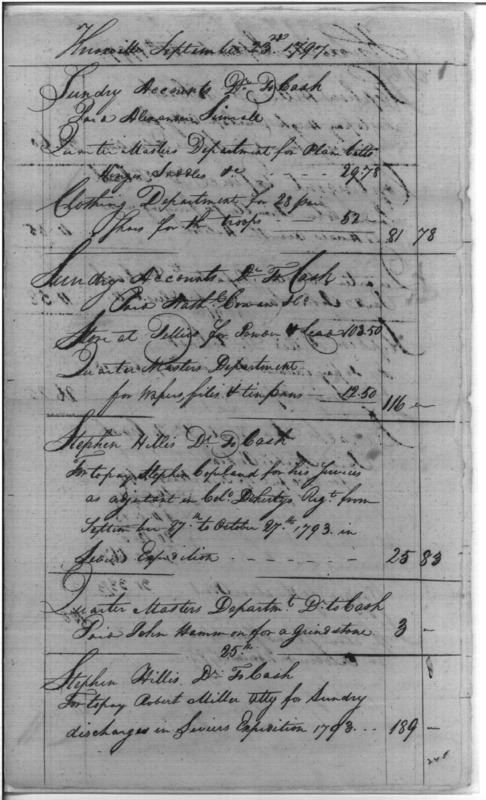 Knoxville September 23rd 1797.
Sundry Accounts Dr. To Cash
Paid Alexander
Quarter Masters Department for Plow
Saddles &c 29.78
Clothing Department for 28 pair
Shoes for the troops — 52 — 81 78
Sundry Accounts Dr. To Cash
Paid Nathl Cowan
Store at Tellico for Powder & Lead 103.50
Quarter Masters Department
for Wafers, files & tin pans — 12.50 116 —
Stephen Hillis Dr. To Cash
For to pay Stephen Copeland for his Services
as adjutant in Colo. Doherty's Regt. from
September 27th to October 27th 1793. in
Seviers Expedition - - - - 25 83
Quarter Masters Departmt. Dr. to Cash
Paid John Hammon for a Grindstone 3 —
25th
Stephen Hillis Dr. To Cash
For to pay Robert Miller atty for Sundry
discharges in Seviers Expedition 1793... 189 —